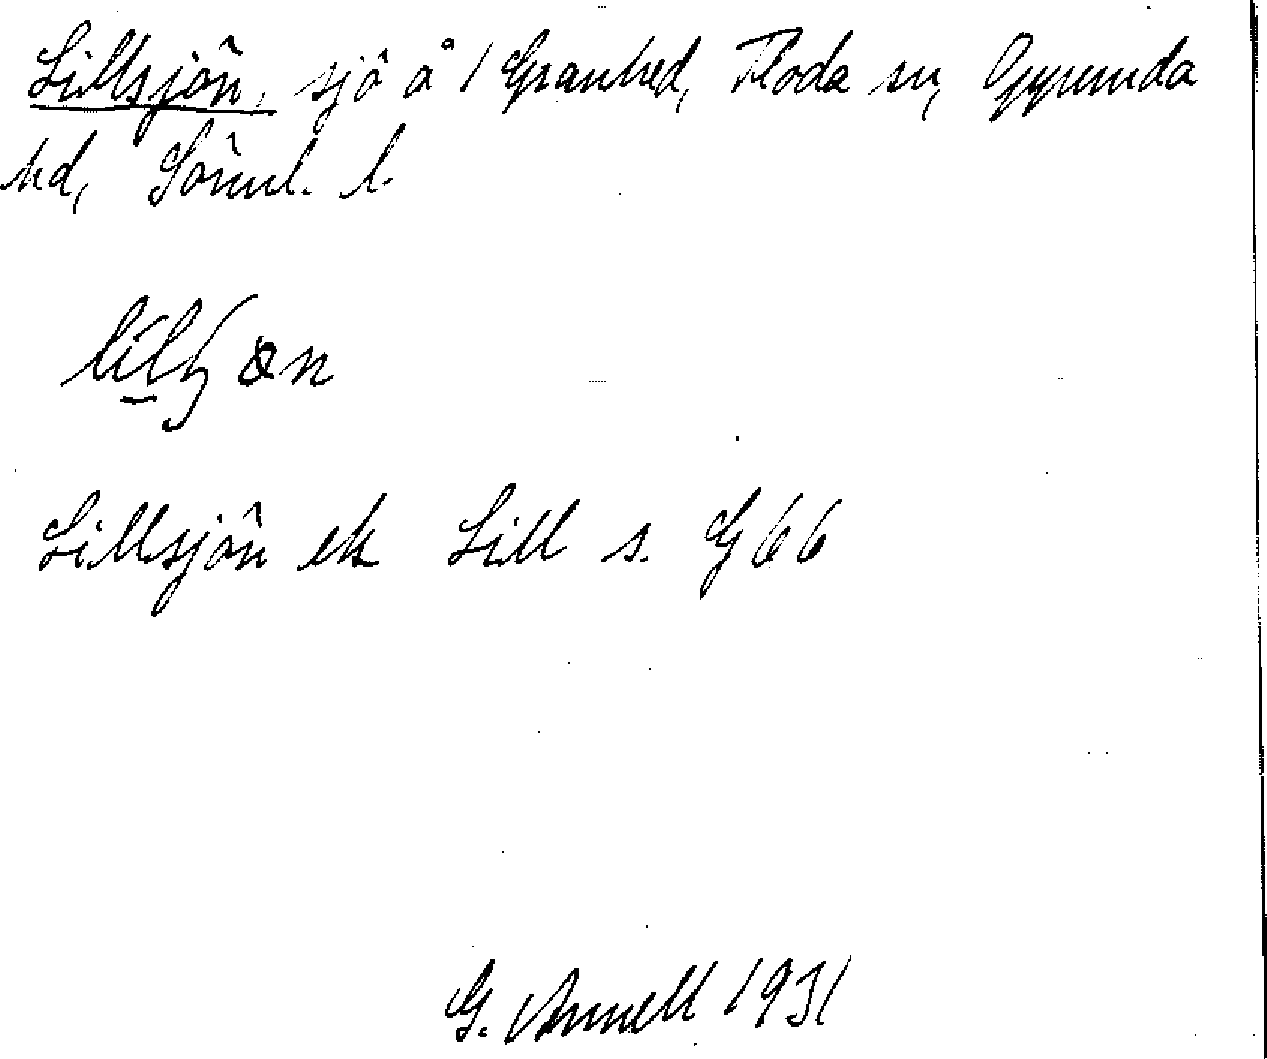 Lillsjön, sjö å 1 Granhed, Floda sn, Oppunda
hd, Sörml. l.
Lillsjön ek Lill s. G 66
G. Annell 1931